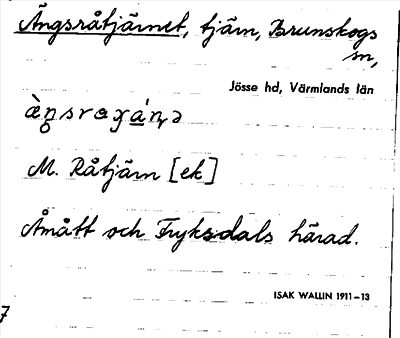 Ängsråtjärnet, tjärn, Brunskogs
sn,
Jösse hd, Värmlands län
M. Råtjärn [ek]
Åmått och Fryksdals härad.
ISAK WALLIN 1911–13
7